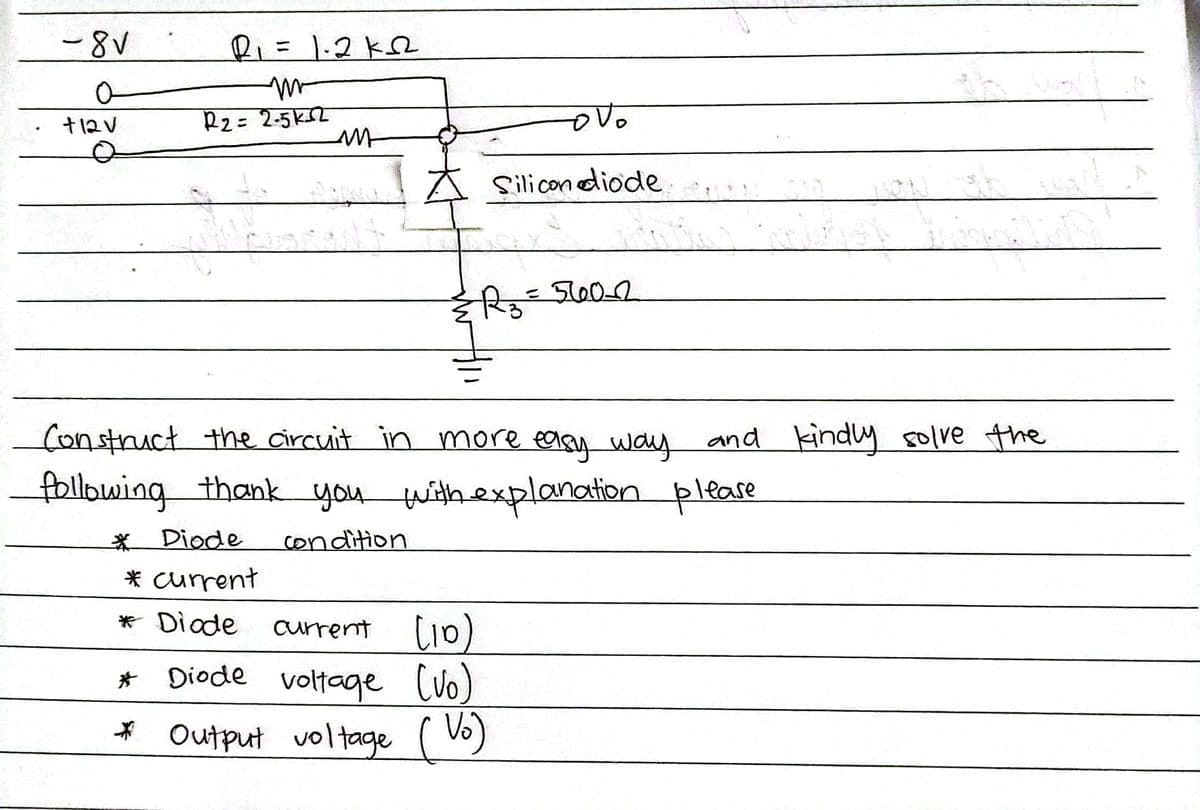 -8V R1 = 1.2 kΩ
+12V R2 = 2.5kΩ
Vo
Silicon diode
R3 = 560Ω
Construct the circuit in more easy way and kindly solve the
following thank you with explanation please
* Diode condition
* current
* Diode current (ID)
* Diode voltage (VD)
* Output voltage (Vo)